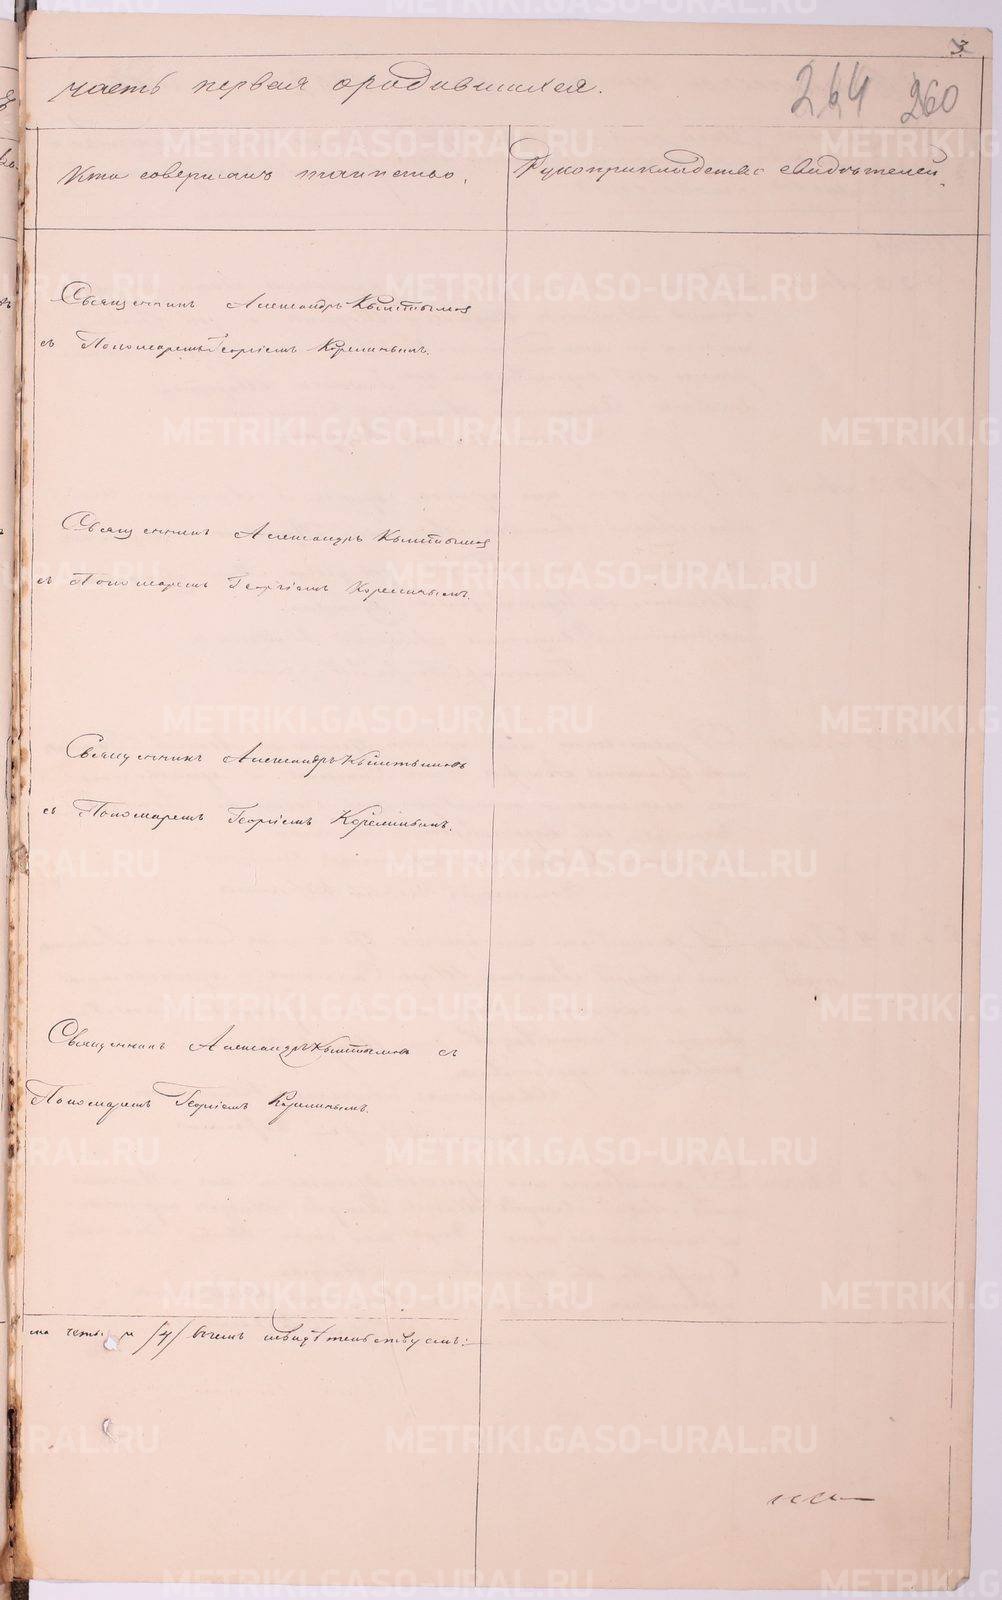 3
часть первая о родившихся.
264 260
Кто совершалъ таинство.
Рукоприкладство свидѣтелей.
Священникъ Александръ Кыштымовъ
съ Пономаремъ Георгіемъ Корелинымъ.
Священникъ Александръ Кыштымовъ
съ Пономаремъ Георгіемъ Корелинымъ.
Священникъ Александръ Кыштымовъ
съ Пономаремъ Георгіемъ Корелинымъ.
Священникъ Александръ Кыштымовъ съ
Пономаремъ Георгіемъ Корелинымъ.
/4/ свидѣтельствуемъ:
METRIKI.GASO-URAL.RU